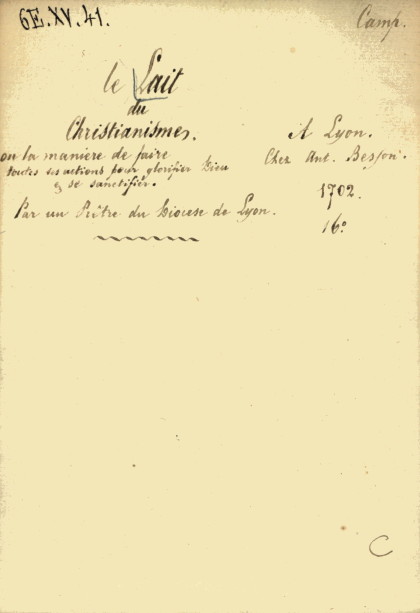 6E.XV.41.
Camp.
le Lait
du
Christianismes.
ou la maniere de faire
toutes ses actions pour glorifier Dieu
& se sanctifier.
Par un Prêtre du Diocese de Lyon.
A Lyon.
Chez Ant. Besson.
1702.
16°
C